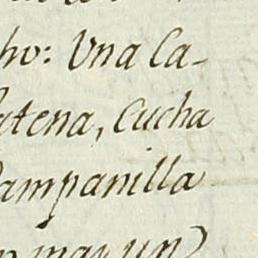 ho: Una Ca-
atena, Cucha
Campanilla